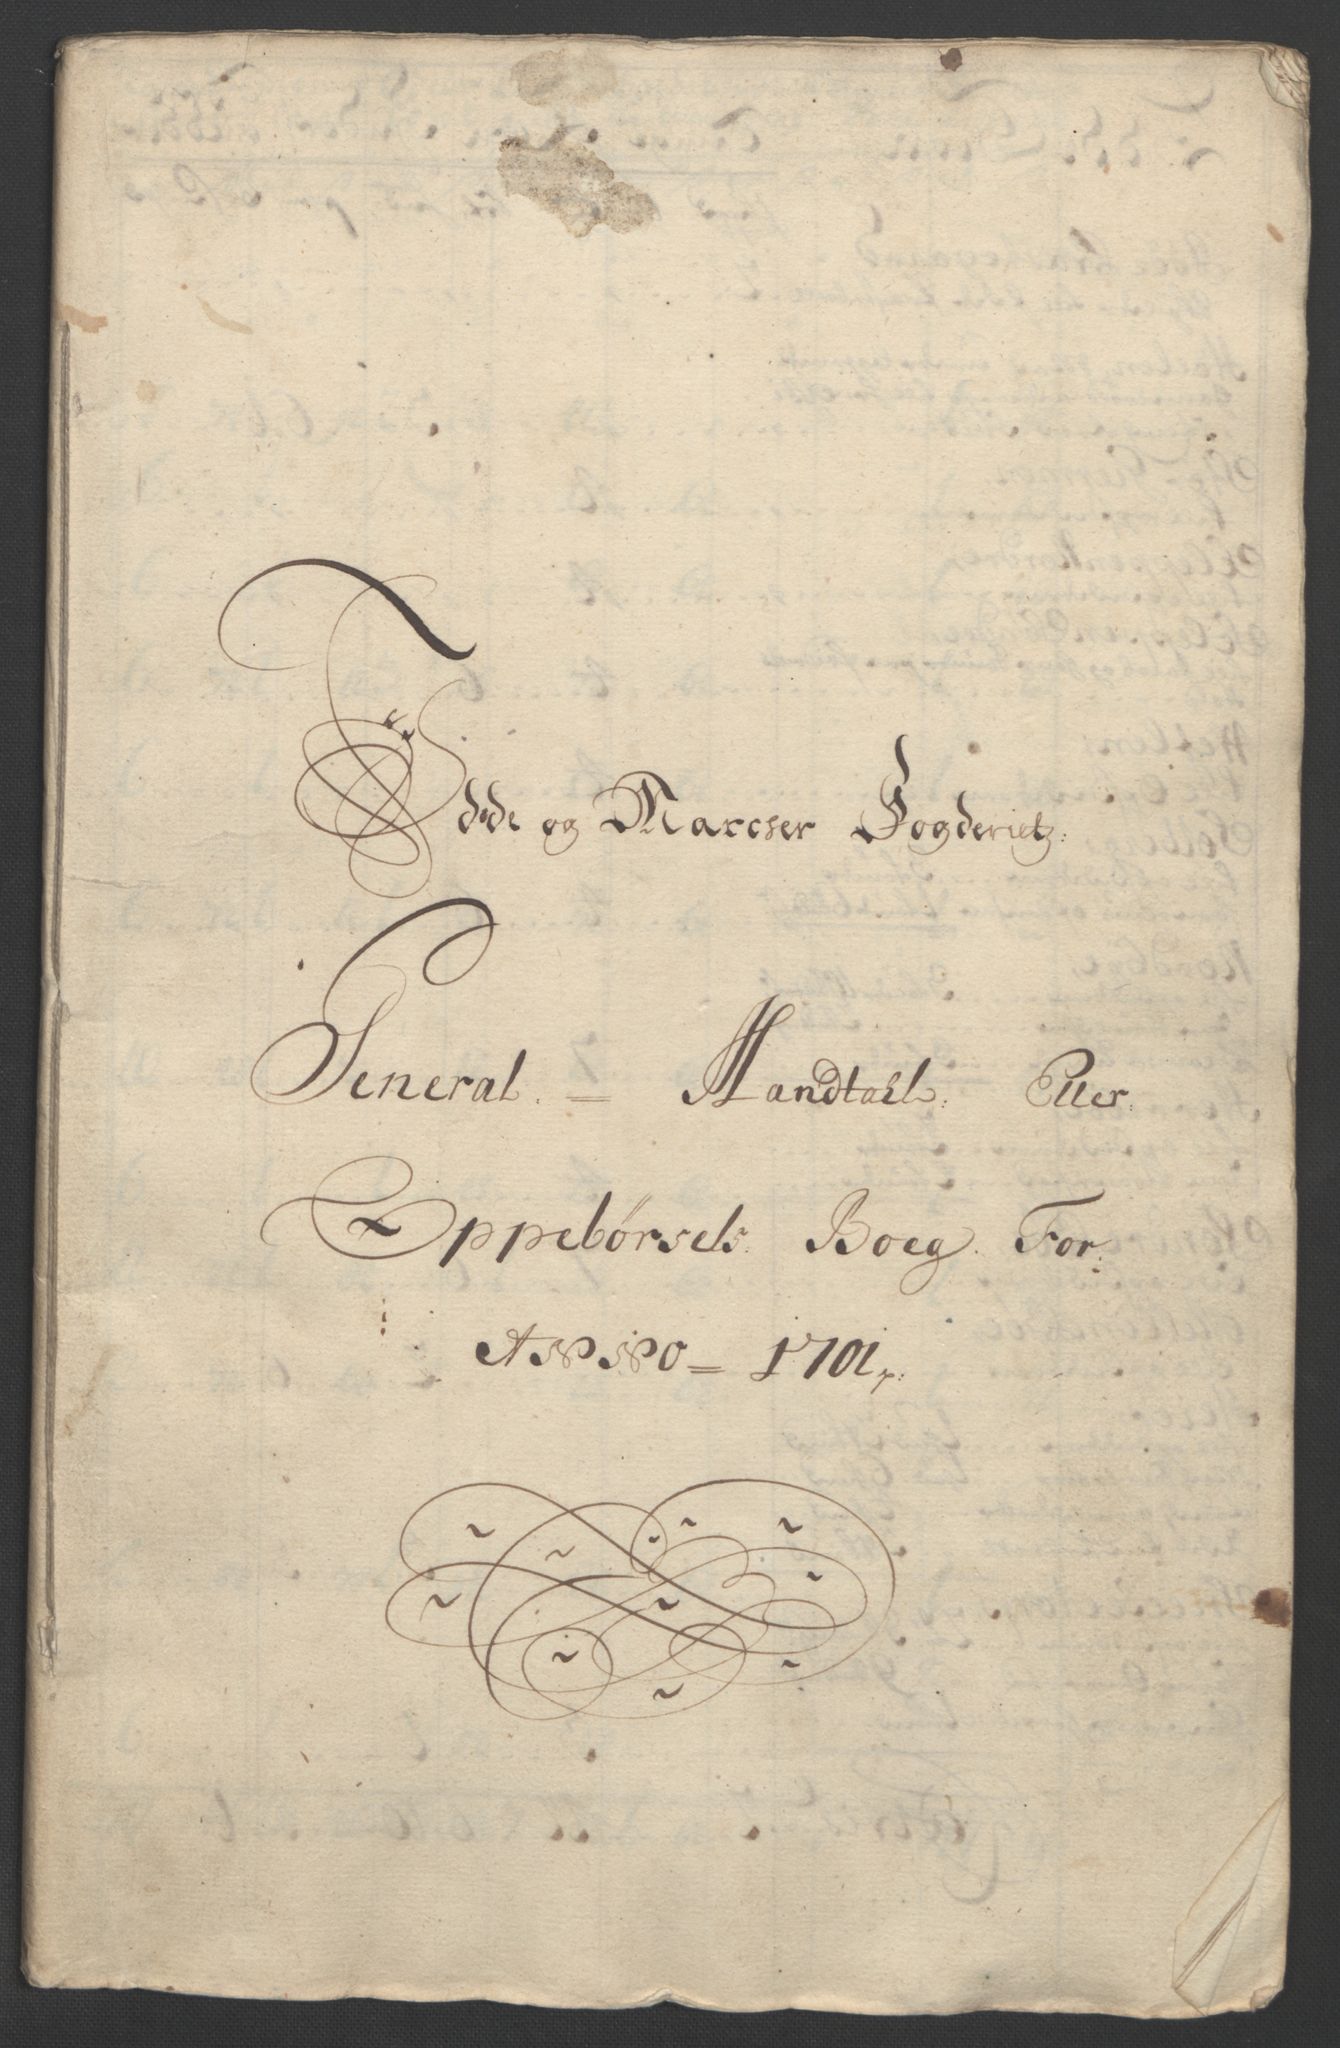 Idde og Marcker Fogderietz:
General. = Mandtahl. Eller.
Oppebörsels. Boeg. For:
ANNO = 1701